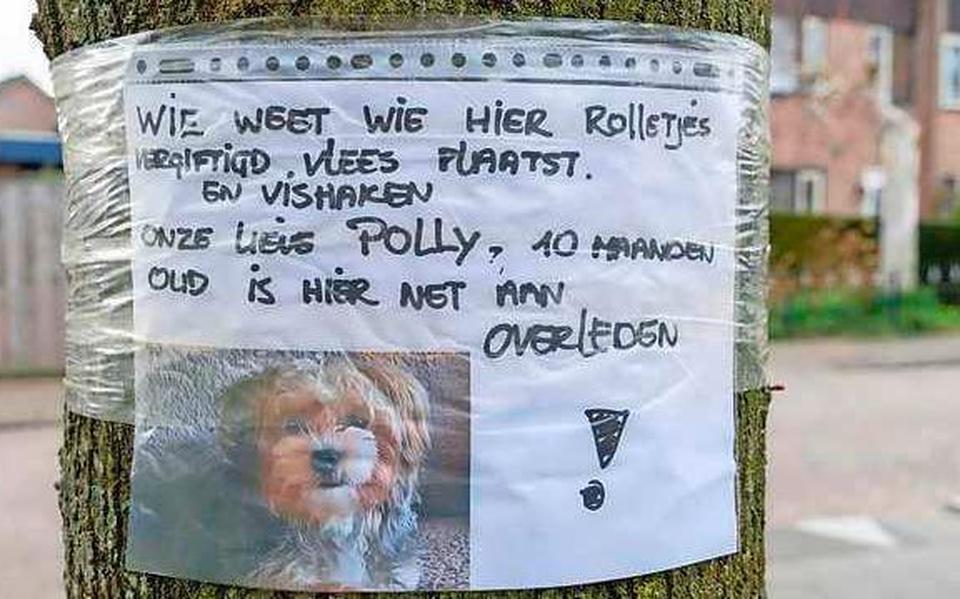 WIE WEET WIE HIER Rolletjes
VERGIFTIGD VLEES PLAATST.
EN VISHAKEN
ONZE LIEVE POLLY, 10 MAANDEN
OUD IS HIER NET AAN
OVERLEDEN
!